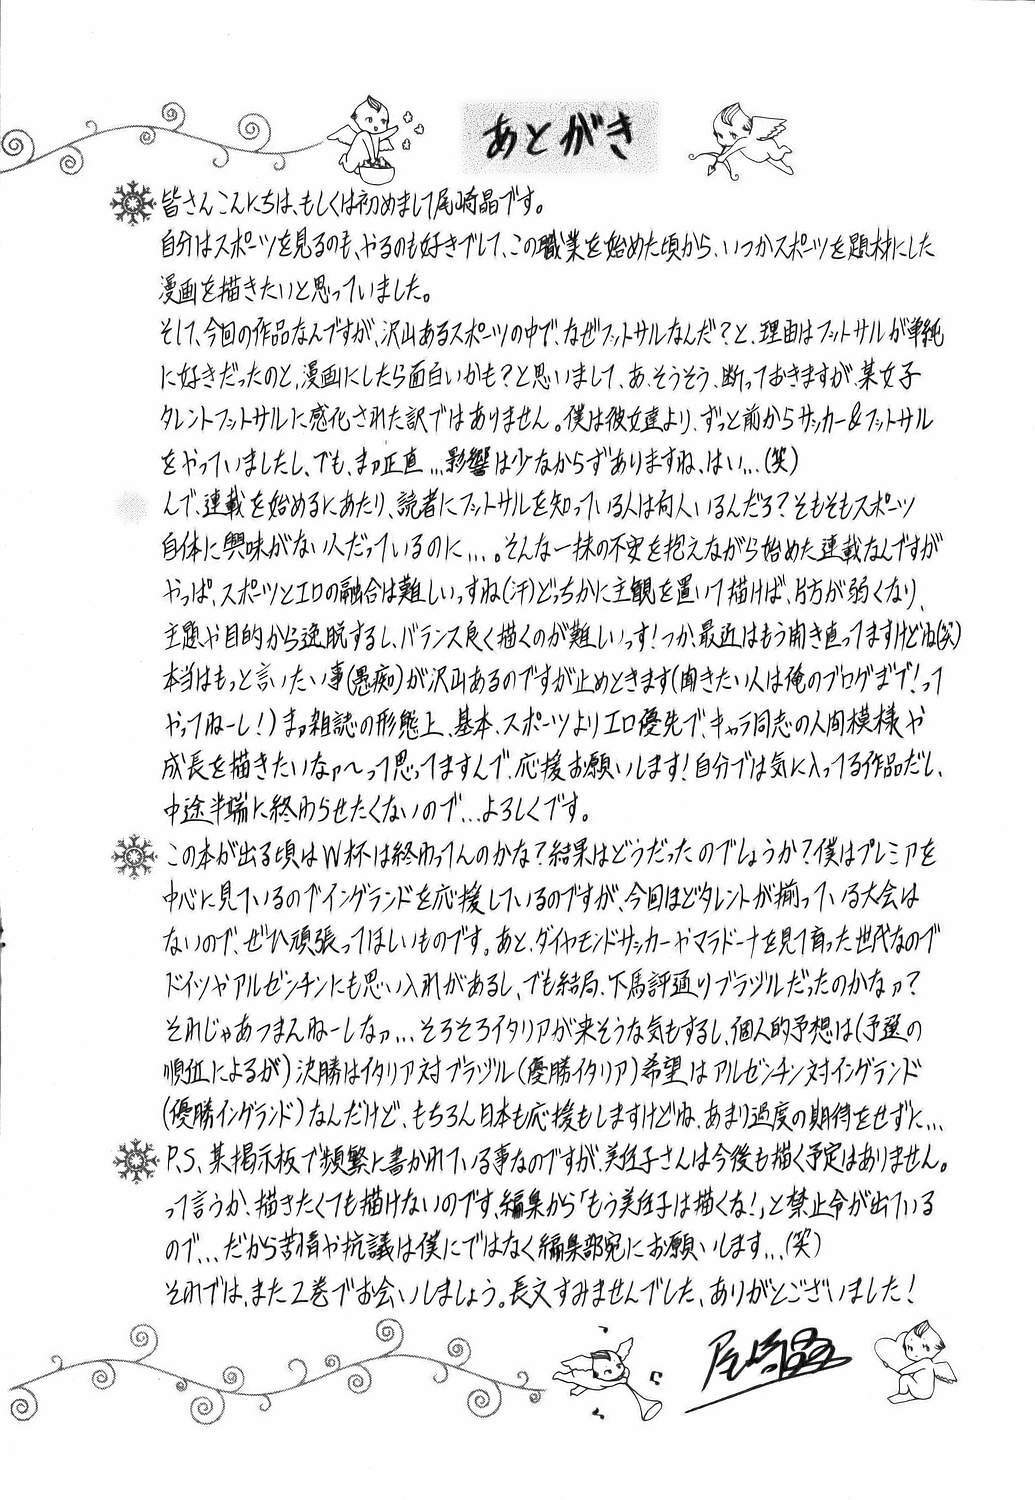 あとがき
皆さんこんにちは、もしくは初めまして尾崎晶です。
自分はスポーツを見るのも、やるのも好きでして、この職業を始めた頃から、いつかスポーツを題材にした
漫画を描きたいと思っていました。
そして、今回の作品なんですが、沢山あるスポーツの中で、なぜフットサルなんだ?と、理由はフットサルが単純
に好きだったのと、漫画にしたら面白いかも?と思いまして、あ、そうそう、断っておきますが、某女子
タレントフットサルに感化された訳ではありません。僕は彼女達より、ずっと前からサッカー&フットサル
をやっていましたし、でも、まァ正直...影響は少なからずありますね、はい...(笑)
んで、連載を始めるにあたり、読者にフットサルを知っている人は何人いるんだろ?そもそもスポーツ
自体に興味がない人だっているのに...。そんな一抹の不安を抱えながら始めた連載なんですが
やっぱ、スポーツとエロの融合は難しいっすね(汗)どっちかに主観を置いて描けば、片方が弱くなり、
主題や目的から逸脱するし、バランス良く描くのが難しいっす!つか、最近はもう開き直ってますけどね(笑)
本当はもっと言いたい事(愚痴)が沢山あるのですが止めときます(聞きたい人は俺のブログまで!って
やってねーし!)まァ雑誌の形態上、基本、スポーツよりエロ優先で、キャラ同志の人間模様や
成長を描きたいなァ〜って思ってますんで、応援お願いします!自分では気に入ってる作品だし、
中途半端に終わらせたくないので...よろしくです。
この本が出る頃はW杯は終わってんのかな?結果はどうだったのでしょうか?僕はプレミアを
中心に見ているのでイングランドを応援しているのですが、今回ほどタレントが揃っている大会は
ないので、ぜひ頑張ってほしいものです。あと、ダイヤモンドサッカーやマラドーナを見て育った世代なので
ドイツやアルゼンチンにも思い入れがあるし、でも結局、下馬評通りブラヅルだったのかなァ?
それじゃあつまんねーしなァ...そろそろイタリアが来そうな気もするし、個人的予想は(予選の
順位によるが)決勝はイタリア対ブラヅル(優勝イタリア)希望はアルゼンチン対イングランド
(優勝イングランド)なんだけど、もちろん日本も応援もしますけどね、あまり過度の期待をせずに...
P.S、某掲示板で頻繁に書かれている事なのですが、美佐子さんは今後も描く予定はありません。
って言うか、描きたくても描けないのです、編集から「もう美佐子は描くな!」と禁止令が出ている
ので...だから苦情や抗議は僕にではなく編集部宛にお願いします...(笑)
それでは、また2巻でお会いしましょう。長文すみませんでした、ありがとございました!
尾崎晶